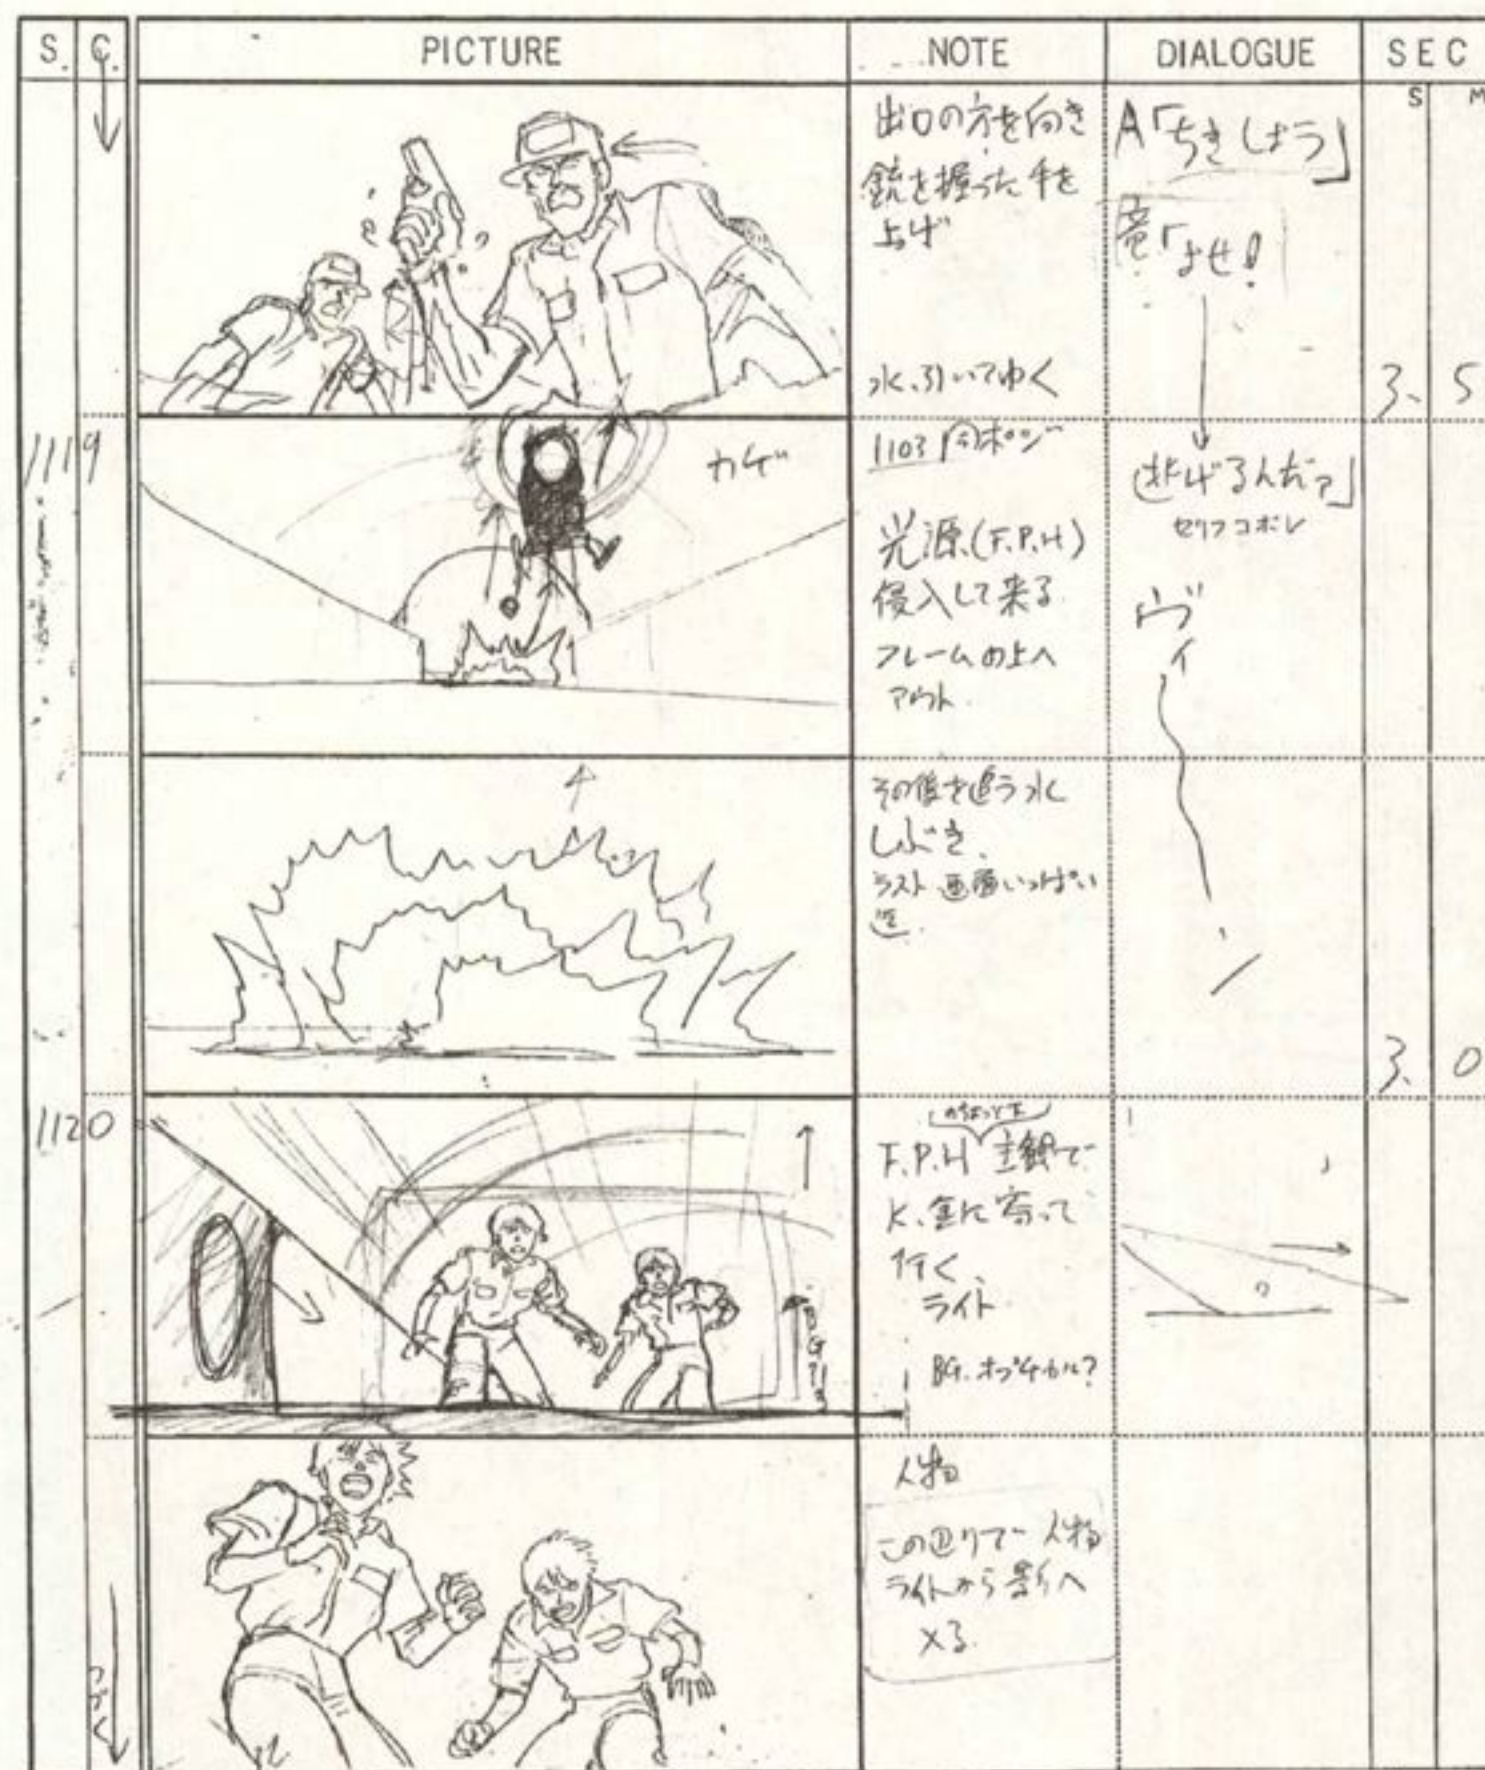 S. C. PICTURE NOTE DIALOGUE SEC
S M
出口の方を向き
銃を握った手を
上げ
水、引いてゆく
A「ちきしょう」
竜「よせ!
3. 5
1119
カゲ
1103 同ポジ
光源(F.P.H)
侵入して来る
フレームの上へ
アウト.
逃げるんだァ」
セリフコボレ
ヴ
イ
ン
その後を追う水
しぶき、
ラスト画面いっぱい
迄.
3. 0
1120
のちょっと下
F.P.H 主観で
K、
に寄って
行く、
ライト
BG. オプチカル?
人物
この辺りで人物
ライトから影へ
×る.
つづく